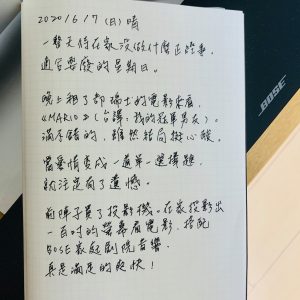 2020/6/7 (日) 晴
一整天待在家沒做什麼正經事，
適宜耍廢的星期日。
晚上租了部瑞士的電影來看，
《MARIO》(台譯：我的冠軍男友)。
滿不錯的，雖然結局挺心酸。
當愛情變成一道單一選擇題，
就注定有了遺憾。
前陣子買了投影機。在家投影出
一百吋的螢幕看電影，搭配
BOSE家庭劇院音響，
真是滿足的爽快！
BOSE